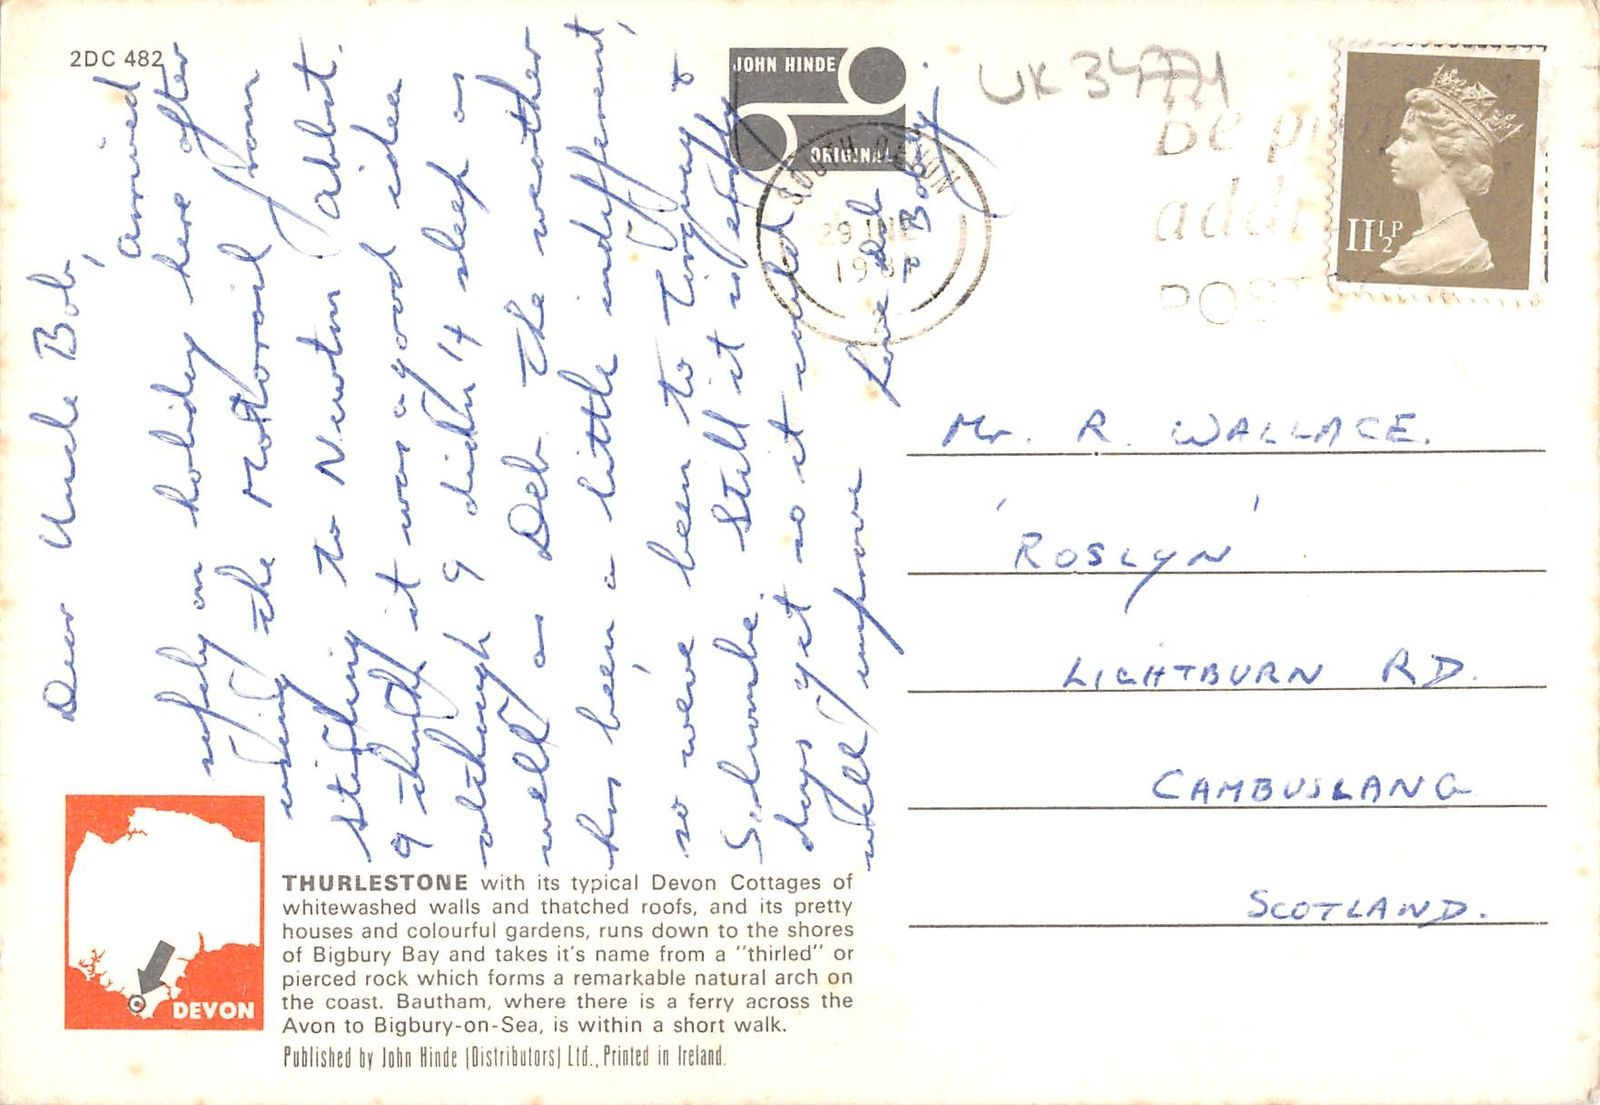 2DC 482
JOHN HINDE
ORIGINAL
UK 34771
SOUTH DEVON
29 JNE
198
Be p
add
POST
11½P
Dear Uncle Bob,
arrived
safely on holiday here after
using the Motorail from
Stirling to Newton Abbot.
I think it was a good idea
although I didn't sleep as
well as Deb. The weather
has been a little indifferent,
so we've been to Torquay &
Salcombe. Still it is early
days yet so it could
well improve
Love Deb
& Bobby.
Mr. R. WALLACE.
'ROSLYN'
LIGHTBURN RD.
CAMBUSLANG
SCOTLAND.
DEVON
THURLESTONE with its typical Devon Cottages of
whitewashed walls and thatched roofs, and its pretty
houses and colourful gardens, runs down to the shores
of Bigbury Bay and takes it's name from a "thirled" or
pierced rock which forms a remarkable natural arch on
the coast. Bautham, where there is a ferry across the
Avon to Bigbury-on-Sea, is within a short walk.
Published by John Hinde (Distributors) Ltd., Printed in Ireland.